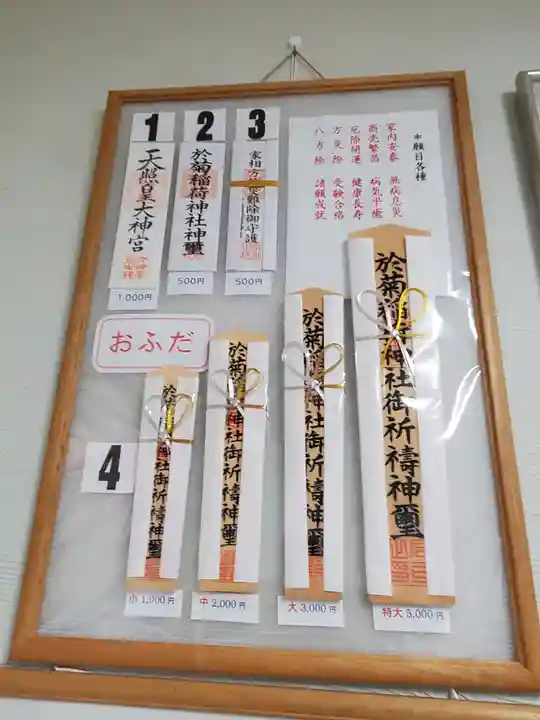 1
天照皇大神宮
1,000円
2
於菊稲荷神社神璽
500円
3
家相方災難除御守護
500円
*願目各種
家内安泰 無病息災
商売繁昌 病気平癒
厄除開運 健康長寿
方災除 受験合格
八方除 諸願成就
おふだ
4
於菊 神社御祈禱神璽
小 1,000円
於菊 神社御祈禱神璽
中 2,000円
於菊稲 神社御祈禱神璽
大 3,000円
於菊稲荷神社御祈禱神璽
特大 5,000円